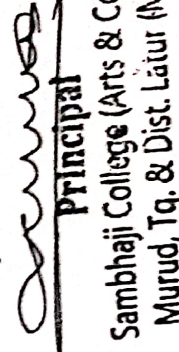 Principal
Sambhaji College (Arts & Co
Murud, Tq. & Dist. Latur (M